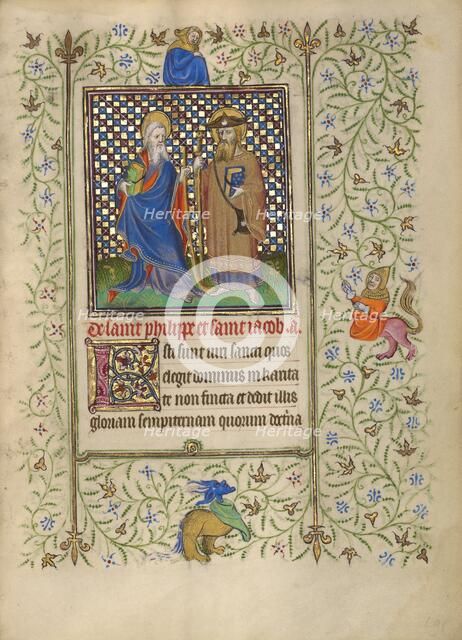 De saint philippe et saint iacob. a.
Isti sunt uiri sancti quos
elegit dominus in karita
te non ficta et dedit illis
gloriam sempiternam quorum doctrina
Heritage
Heritage
Heritage
Heritage
Heritage
Heritage
Heritage
Heritage
Heritage